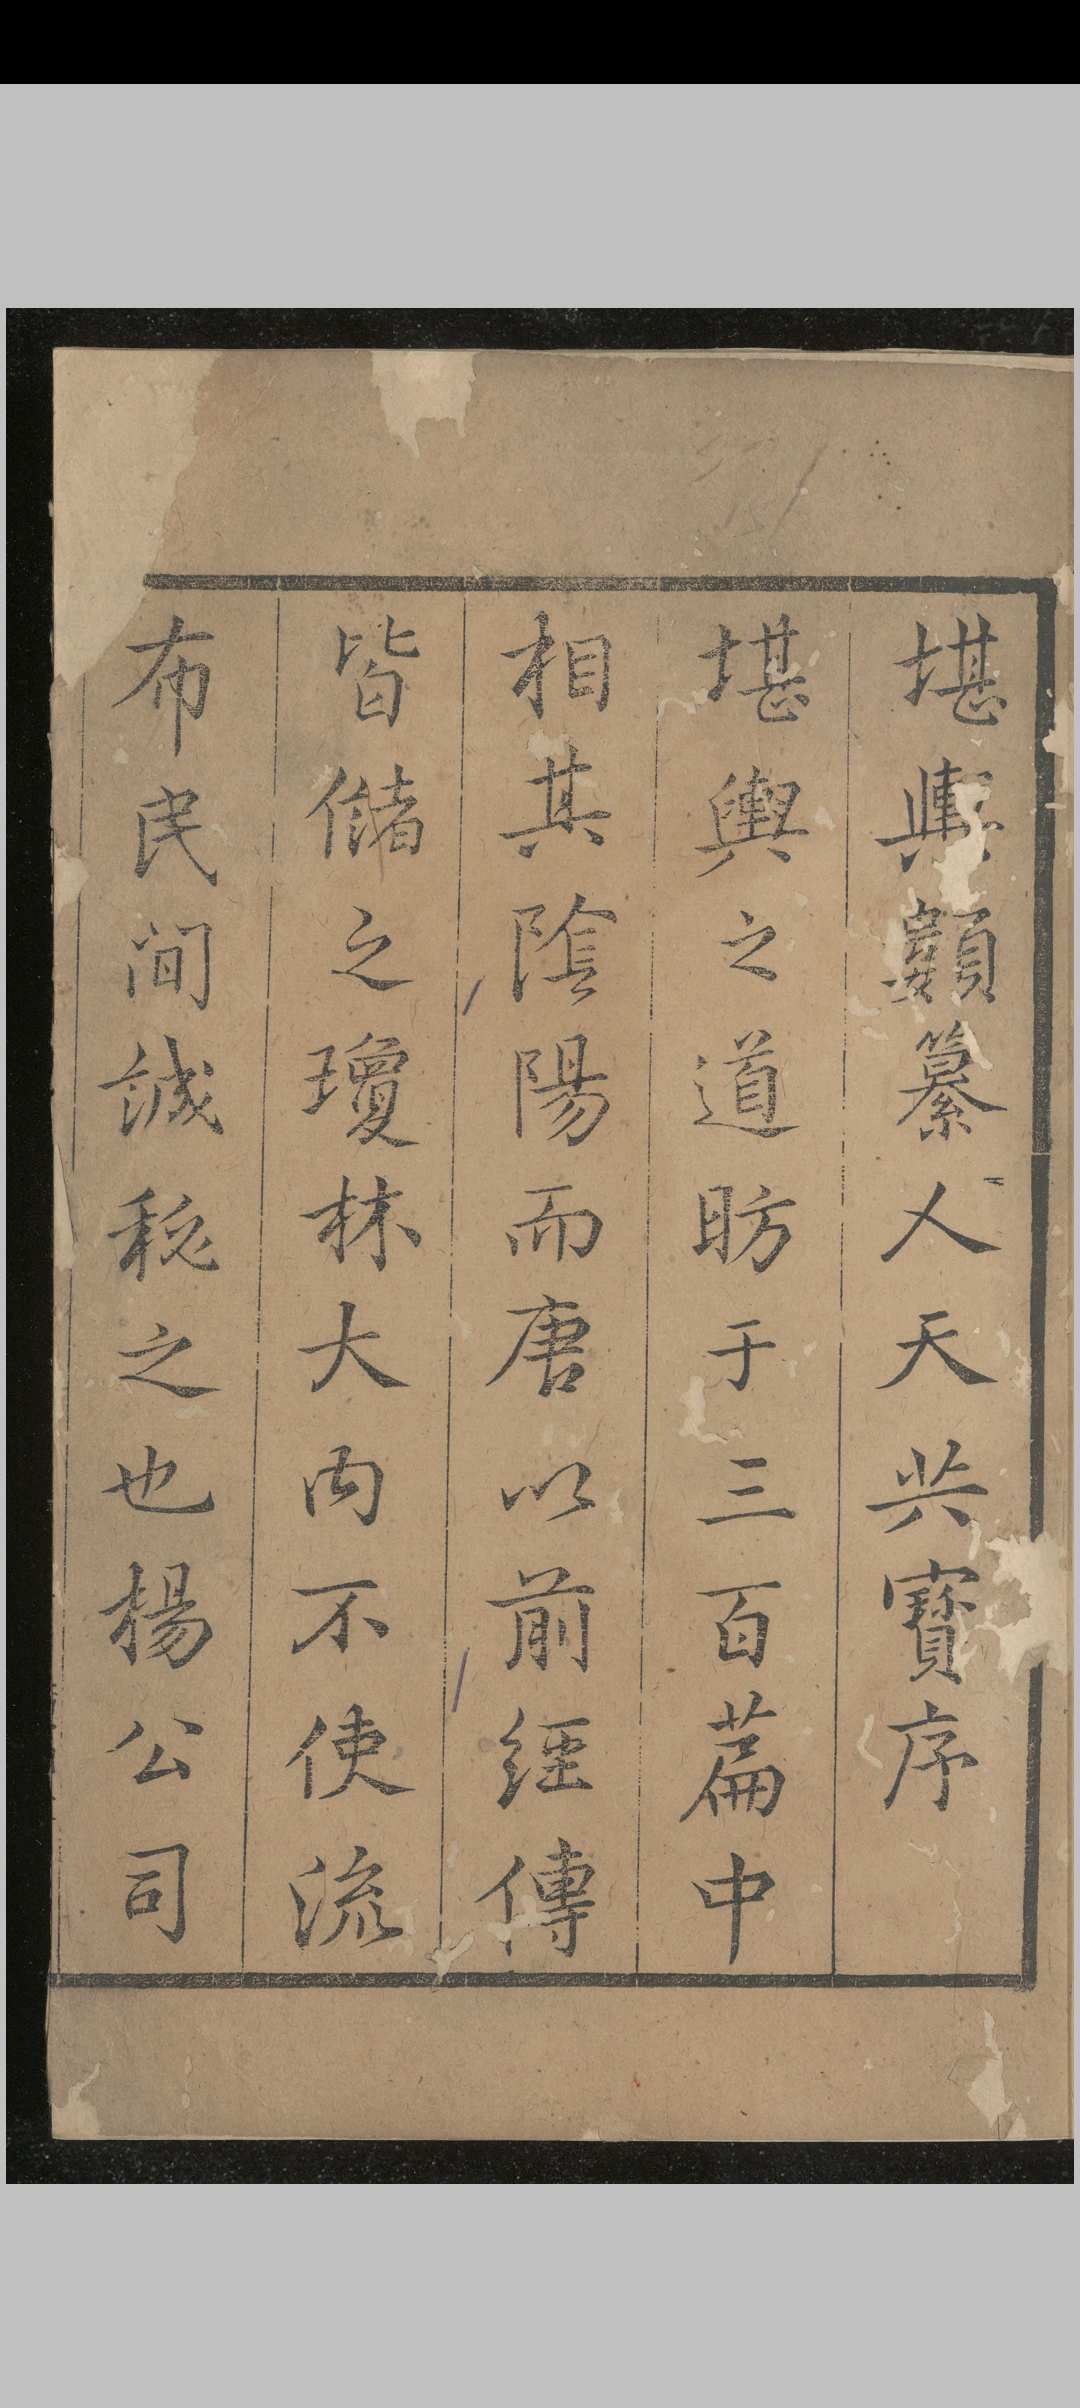 堪輿類纂人天共寶序
堪輿之道昉于三百篇中
相其陰陽而唐以前經傳
皆儲之瓊林大內不使流
布民間誠秘之也楊公司